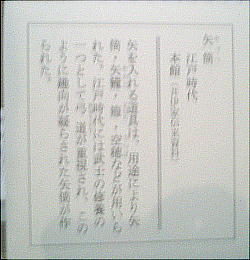 矢筒
江戸時代
本館（井伊家伝来資料）
矢を入れる道具は、用途により矢
筒・矢籠・箙・空穂などが用いら
れた。江戸時代には武士の修養の
一つとして弓道が重視され、この
ように趣向が凝らされた矢筒が作
られた。